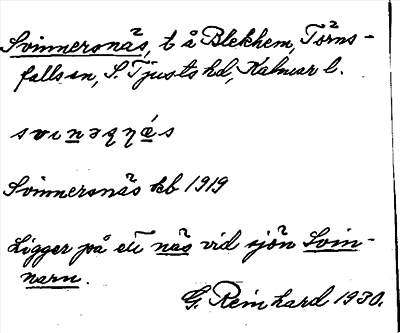 Svinnersnäs, t å Blekhem, Törns-
falls sn, S. Tjusts hd, Kalmar l.
svinəɋnás
Svinnersnäs kb 1919
Ligger på ett näs vid sjön Svin-
narn.
G. Reinhard 1930.